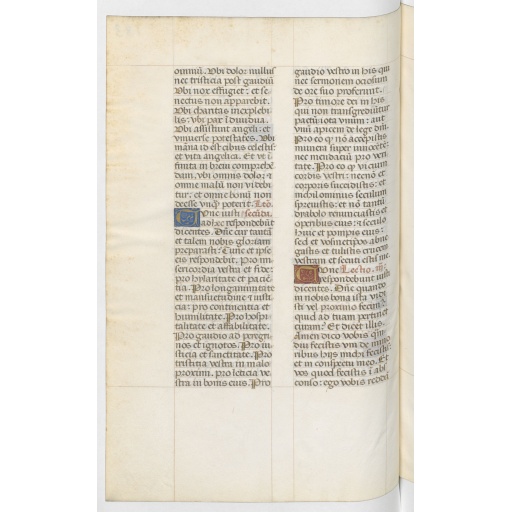 omniũ. Vbi dolor nullus
nec tristicia post gaudiũ
Vbi nox effugiet: et se-
nectus non apparebit.
Vbi charitas inexplebi-
lis: vbi pax ĩdiuidua.
Vbi assistunt angeli: et
vniuerse potestates. Vbi
mãna id est cibus celestis:
et vita angelica. Et vt ĩ-
finita in breui comprehẽ
dam. vbi omnis dolor &
omne malũ non videbi
tur: et omne bonũ non
deesse vnq̃ poterit. Leo.
Tunc iusti secũda.
ad hec respondebũt
dicentes. Dñe cur tantã
et talem nobis gloriam
preparasti? Tunc et ipse
eis respondebit. Pro mi
sericordia vestra et fide:
pro hylaritate et paciẽ-
tia. Pro longanimitate
et mansuetudine & iusti
cia: pro continentia et
humilitate. Pro hospi-
talitate et affabilitate.
Pro gaudio ad peregri-
nos et ignotos. Pro iu-
sticia et sanctitate. Pro
tristitia vestra in malo
proximi. pro leticia ve-
stra in bonis eius. Pro
gaudio vestro in his qui
nec sermonem ociosum
de ore suo proferunt.
Pro timore dei in his
qui non transgrediũtur
pactũ iota vnum: aut
vnũ apicem de lege dñi.
Pro eo q̃ nõ accepistis
munera super innocẽtẽ:
nec mendaciũ pro veri
tate. Pro eo q̃ vicium
cordis vestri: necnõ et
corporis succidistis: et
nichilominus seculum
spreuistis: et nõ tantũ
dyabolo renunciastis et
operibus eius: & seculo
huic et pompis eius:
sed et vosmetipos abne
gastis et tulistis crucem
vestram et secuti estis me.
Tunc Lectio. iij.
respondebunt iusti
dicentes. Dñe quando
in nobis bona ista vidi
sti vel proximo fecim9
quod ad tuam pertinet
curam? Et dicet illis.
Amen dico vobis q̃m
diu fecistis vni de mino
ribus hijs michi fecistis:
et in conspectu meo. Et
vos quod fecistis ĩ abs
conso: ego vobis reddã